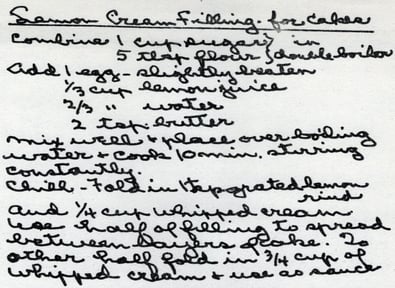 Lemon Cream Filling - for cakes
Combine 1 cup sugar } in
5 tsp flour } double boiler
Add 1 egg - slightly beaten
1/3 cup lemon juice
2/3 " water
2 tsp. butter
Mix well & place over boiling
water & cook 10 min. stirring
constantly.
Chill - Fold in 1 tsp grated lemon
rind
and 1/4 cup whipped cream
Use half of filling to spread
between layers of cake. To
other half fold in 3/4 cup of
whipped cream & use as sauce